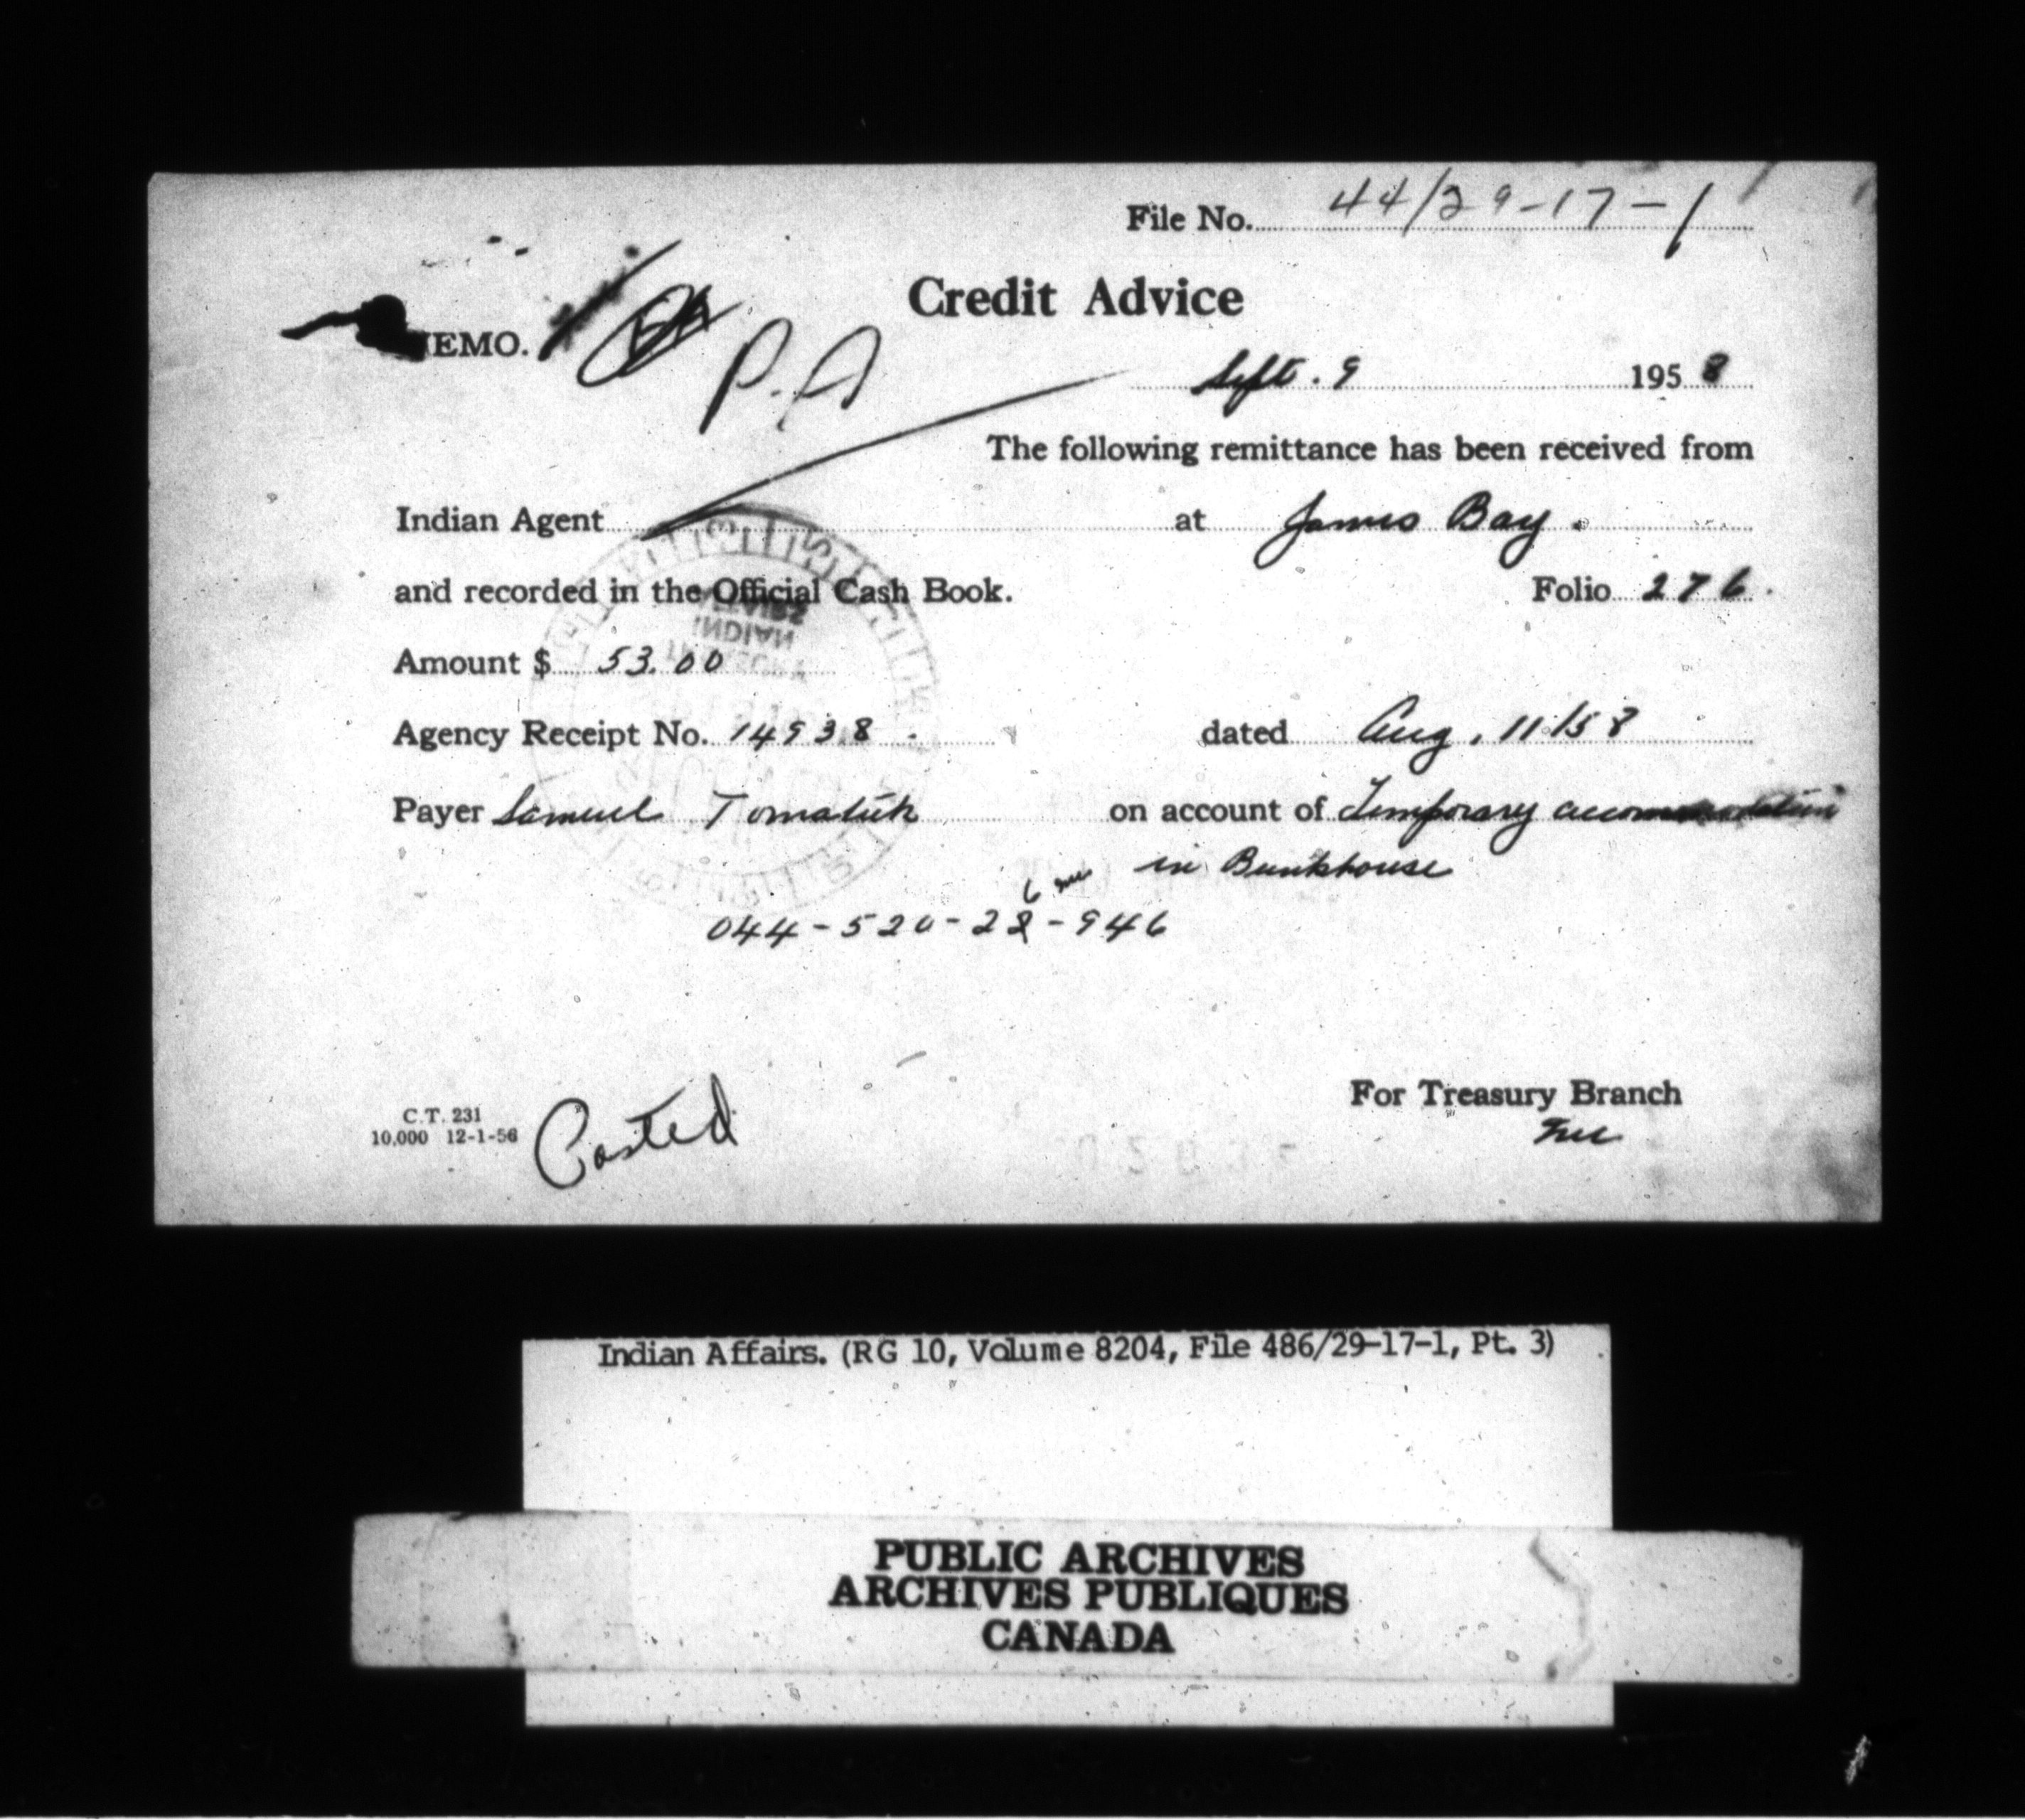 File No. 44/29-17-1
Credit Advice
MEMO.
P.A
Sept. 9 1958
The following remittance has been received from
Indian Agent at James Bay.
and recorded in the Official Cash Book. Folio 276.
INDIAN
Amount $ 53.00
Agency Receipt No. 14938. dated Aug. 11/58
Payer Samuel Tomatuk on account of Temporary accommodation
in Bunkhouse
6
044-520-28-946
For Treasury Branch
C.T. 231
10,000 12-1-56
Posted
Indian Affairs. (RG 10, Volume 8204, File 486/29-17-1, Pt. 3)
PUBLIC ARCHIVES
ARCHIVES PUBLIQUES
CANADA